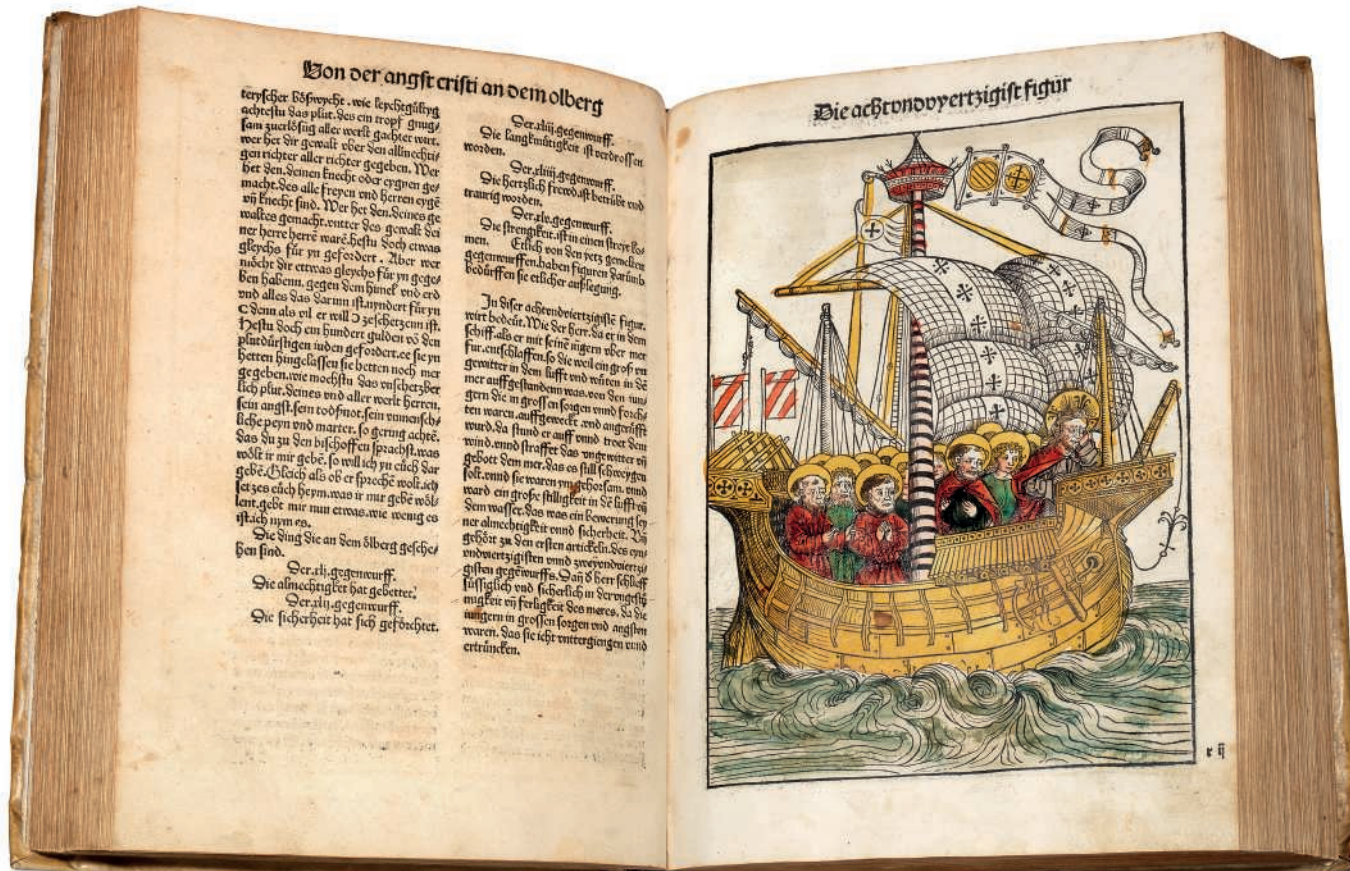 Von der angst cristi an dem olberg
teryscher bößwycht. wie leychtgültyg
achtestu das plut. des ein tropf gnug-
sam zuerlösüg aller werlt gachtet wurt.
wer het dir gewalt vber den allmechti-
gen richter aller richter gegeben. Wer
het den. deinen knecht oder eygnen ge-
macht. des alle freyen vnd herren eygē
vñ knecht sind. Wer het den. deines ge
waltes gemacht. vntter des gewalt dei
ner herre herrē warē. hestu doch etwas
gleychs für yn gefordert. Aber wer
möcht dir ettwas gleychs für yn gege-
ben habenn. gegen dem himel vnd erd
vnd alles das darinn ist. nyndert für yn
denn als vil er will zeschetzenn ist.
Hestu doch ein hundert gulden vō den
plutdürstigen iuden gefordert. ee sie yn
hetten hingelassen sie betten noch mer
gegeben. wie mochstu das vnschetzber
lich plut. deines vnd aller werlt herren,
sein angst. sein todßnot. sein vnmensch-
liche peyn vnd marter. so gering achtē.
das du zu den bischoffen sprachst. was
wölt ir mir gebē. so will ich yn eüch dar
gebē. Gleich als ob er sprechē wolt. ich
setzes eüch heym. was ir mir gebē wöl-
lent. gebt mir nun etwas. wie wenig es
ist. ich nym es.
Die ding die an dem ölberg gesche-
hen sind.
Der. xlj. gegenwurff.
Die almechtigket hat gebettet.
Der. xlij. gegenwurff.
Die sicherheit hat sich geförchtet.
Der. xliij. gegenwurff.
Die langkmütigkeit ist verdrossen
worden.
Der. xliiij. gegenwurff.
Die hertzlich frewd. ist betrübt vnd
traurig worden.
Der. xlv. gegenwurff.
Die strengkeit. ist in einen streyt ko-
men. Etlich von den yetz gemelten
gegenwurffen. haben figuren darūmb
bedürffen sie etlicher außlegung.
In diser achtvndviertzigistē figur.
wirt bedeüt. Wie der herr. da er in dem
schiff. als er mit seinē iügern vber mer
fur. entschlaffen. so die weil ein groß vn
gewitter in dem lufft vnd wüten in dē
mer auffgestandenn was. von den iun-
gern die in grossen sorgen vnnd forch-
ten waren. auffgeweckt. vnd angerüfft
wurd. da stund er auff vnnd troet dem
wind. vnnd straffet das vngewitter vñ
gebott dem mer. das es still schweygen
solt. vnnd sie waren ym gehorsam. vnnd
ward ein große stilligkeit in dē lufft vñ
dem wasser. das was ein bewerung sey
ner almechtigkeit vnnd sicherheit. Vñ
gehört zu den ersten artickeln. des eyn-
vndviertzigisten vnnd zweyvndviertzi-
gisten gegēwurffs. Dañ d herr schlieff
süssiglich vnd sicherlich in der vngestü
migkeit vñ ferligkeit des meres. da die
iungern in grossen sorgen vnd angsten
waren. das sie icht vnttergiengen vnnd
ertrüncken.
Die achtvndvyertzigist figur
r ij